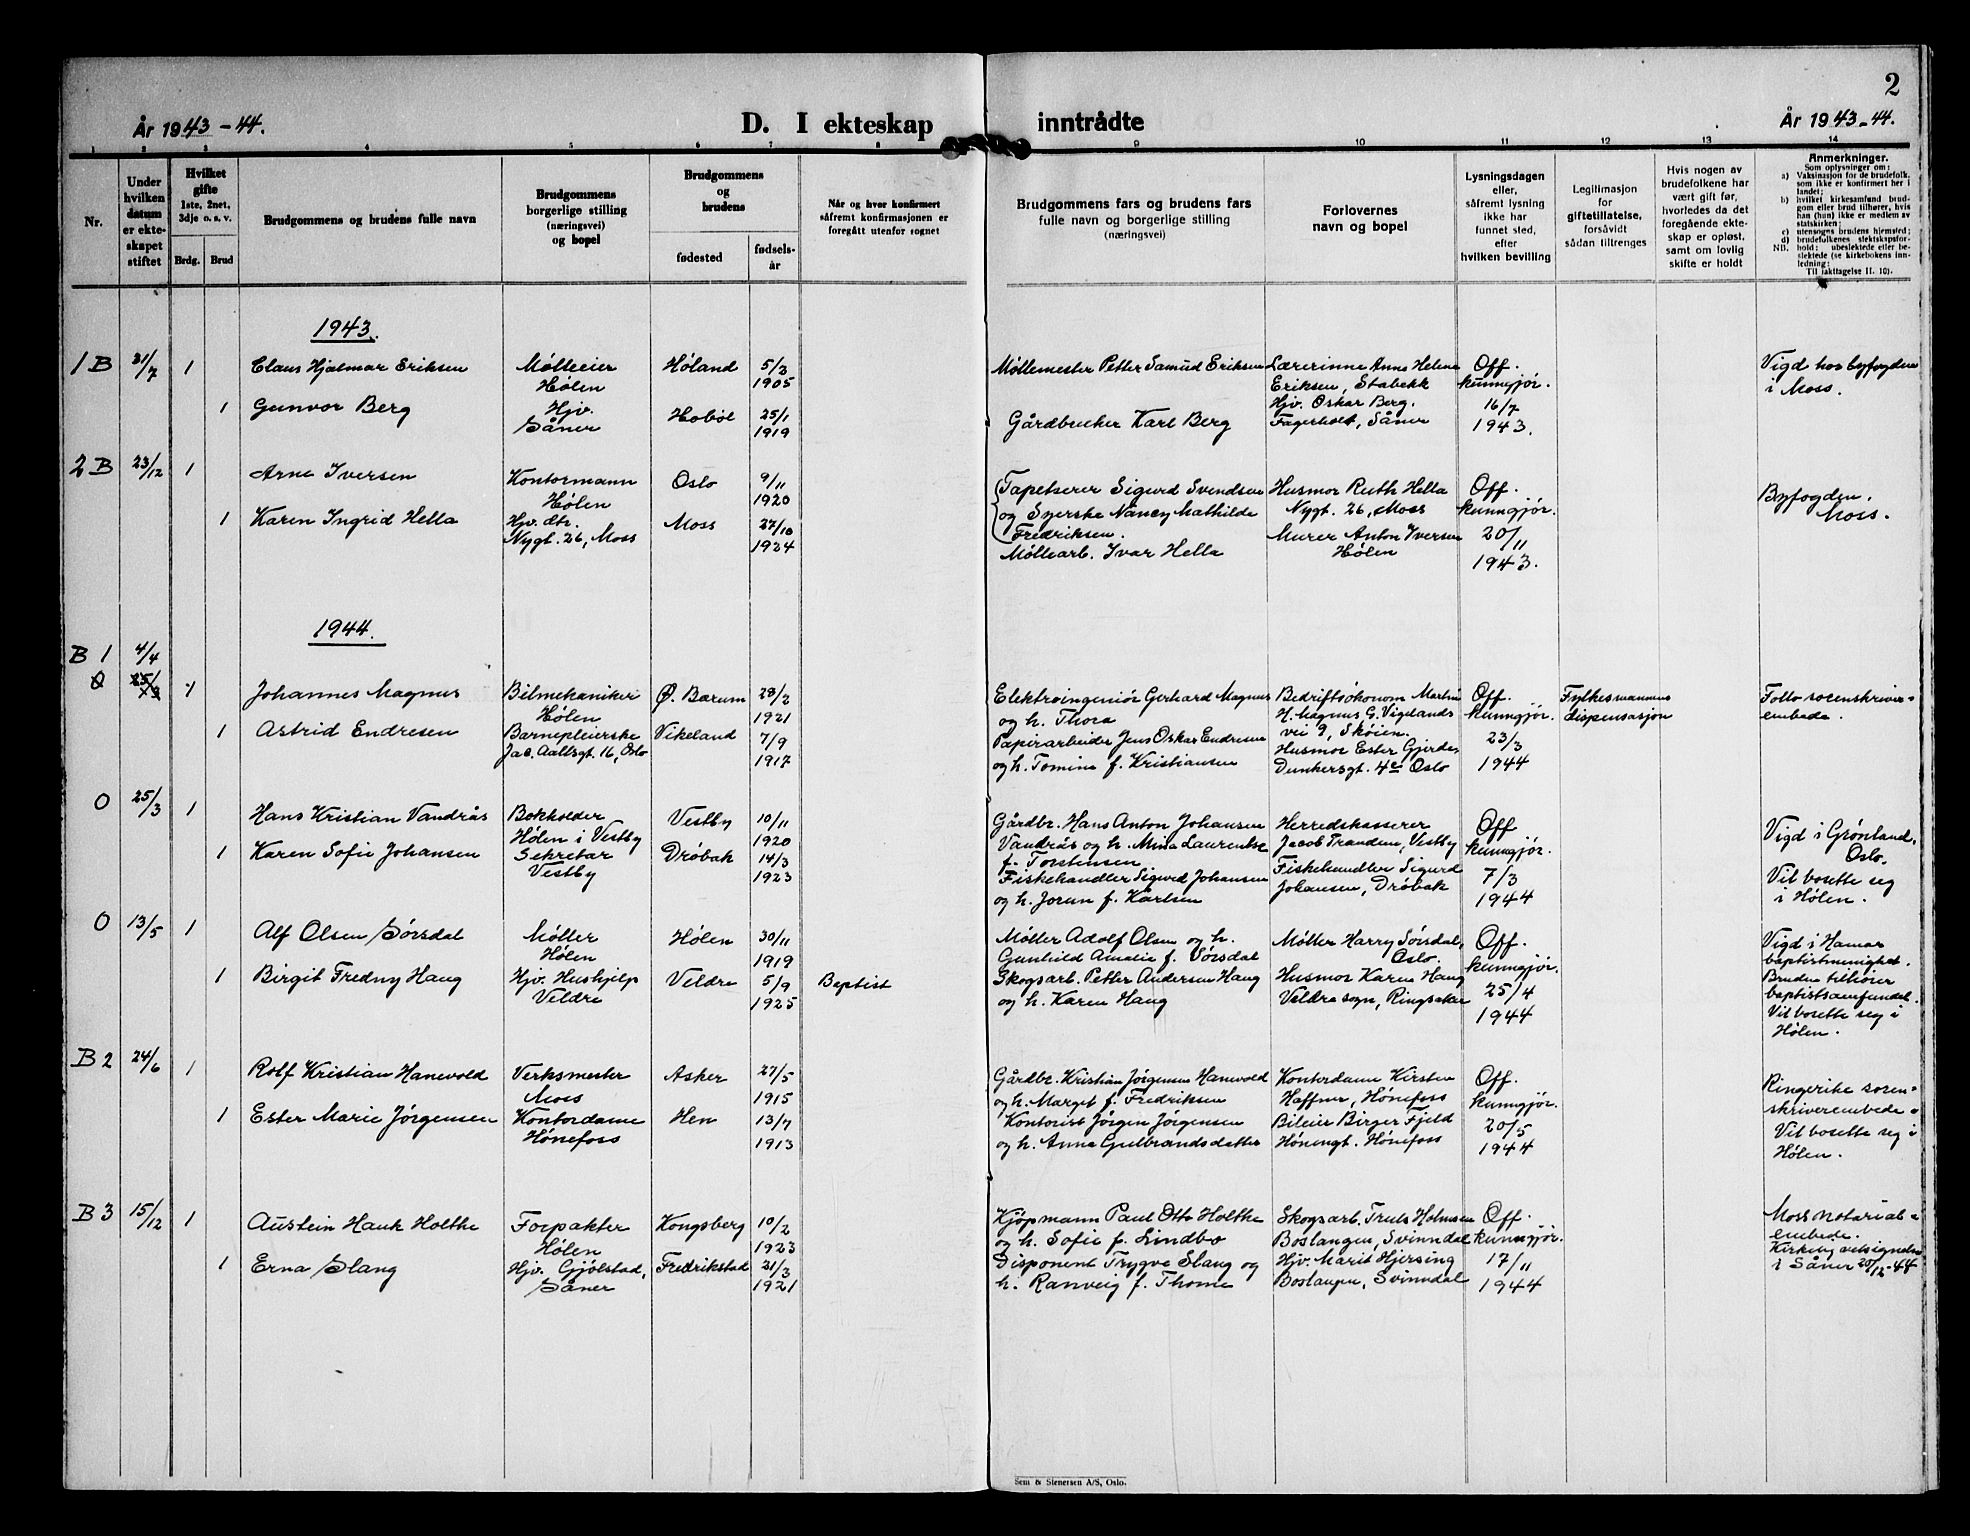 2
År 1943-44.
D. I ekteskap inntrådte
År 1943-44.
1 2 3 4 5 6 7 8 9 10 11 12 13 14
Nr.
Under hvilken datum er ekteskapet stiftet
Hvilket gifte 1ste, 2net, 3dje o. s. v.
Brdg. Brud
Brudgommens og brudens fulle navn
Brudgommens borgerlige stilling (næringsvei) og bopel
Brudgommens og brudens
fødested
fødsels-år
Når og hvor konfirmert såfremt konfirmasjonen er foregått utenfor sognet
Brudgommens fars og brudens fars fulle navn og borgerlige stilling (næringsvei)
Forlovernes navn og bopel
Lysningsdagen eller, såfremt lysning ikke har funnet sted, efter hvilken bevilling
Legitimasjon for giftetillatelse, forsåvidt sådan tiltrenges
Hvis nogen av brudefolkene har vært gift før, hvorledes da det foregående ekteskap er opløst, samt om lovlig skifte er holdt
Anmerkninger.
Som oplysninger om:
a) Vaksinasjon for de brudefolk, som ikke er konfirmert her i landet;
b) hvilket kirkesamfund brudgom eller brud tilhører, hvis han (hun) ikke er medlem av statskirken;
c) utensogns brudens hjemsted;
d) brudefolkenes slektskapsforhold: ubeslektede eller beslektede (se kirkebokens innledning;
NB. Til iakttagelse II. 10).
1943.
1B 31/7 1 Claus Hjalmar Eriksen Mølleeier Hølen Høland 5/3 1905 Møllemester Petter Samud Eriksen Lærerinne Anna Helene Eriksen, Stabekk Off. kunngjør. 16/7 1943. Vigd hos byfogden i Moss.
1 Gunvor Berg Hjv. Såner Hobøl 25/1 1919 Gårdbruker Karl Berg Hjv. Oskar Berg. Fagerholt, Såner
2B 23/12 1 Arne Iversen Kontormann Hølen Oslo 9/11 1920 Tapetserer Sigurd Svendsen og Syerske Nancy Mathilde Fredriksen. Husmor Ruth Hella Nygt. 26, Moss Off. kunngjør. 20/11 1943. Byfogden, Moss.
1 Karen Ingrid Hella Hjv. dtr. Nygt. 26, Moss Moss 27/10 1924 Møllearb. Ivar Hella Murer Anton Iversen Hølen
1944.
B 1 4/4
0 25/3 1 Johannes Magnus Bilmekaniker Hølen Ø. Bærum 28/2 1921 Elektroingeniør Gerhard Magnus og h. Thora Bedriftsøkonom Martin H. Magnus G. Vigelands vei 9, Skøien. Off. kunngjør. 23/3 1944 Fylkesmannens dispensasjon Follo sorenskriverembede.
1 Astrid Endresen Barnepleierske Jac. Aallsgt. 16, Oslo Vikeland 7/9 1917 Papirarbeider Jens Oskar Endresen og h. Tomine f. Kristiansen Husmor Ester Gjerde, Dunkersgt. 4c Oslo
0 25/3 1 Hans Kristian Vandrås Bokholder Hølen i Vestby Vestby 10/11 1920 Gårdbr. Hans Anton Johansen Vandrås og h. Mina Laurentse f. Torstensen Herredskasserer Jacob Tranden, Vestby Off kunngjør. 7/3 1944 Vigd i Grønland, Oslo. Vil bosette seg i Hølen.
1 Karen Sofie Johansen Sekretær Vestby Drøbak 14/3 1923 Fiskehandler Sigurd Johansen og h. Jorun f. Karlsen Fiskehandler Sigurd Johansen, Drøbak
0 13/5 1 Alf Olsen Sørsdal Møller Hølen Hølen 30/11 1919 Møller Adolf Olsen og h. Gunhild Amalie f. Sørsdal Møller Harry Sørsdal, Oslo. Off. kunngjør. 25/4 1944 Vigd i Hamar baptistmenighet. Bruden tilhører baptistsamfundet. Vil bosette seg i Hølen.
1 Birgit Fredny Haug Hjv. Hushjelp Veldre Veldre 5/9 1925 Baptist Skogsarb. Petter Andersen Haug og h. Karen Haug Husmor Karen Haug Veldre sogn, Ringsaker
B 2 24/6 1 Rolf Kristian Hanevold Verksmester Moss Asker 27/5 1915 Gårdbr. Kristian Jørgensen Hanevold og h. Margit f. Fredriksen Kontordame Kirsten Haffner, Hønefoss Off. kunngjør. 20/5 1944 Ringerike sorenskriverembede. Vil bosette seg i Hølen.
1 Ester Marie Jørgensen Kontordame Hønefoss Hen 13/7 1913 Kontorist Jørgen Jørgensen og h. Anna Gulbrandsdatter Bileier Birger Fjeld Hønengt. Hønefoss
B 3 15/12 1 Austein Hauk Holthe Forpakter Hølen Kongsberg 10/2 1923 Kjøpmann Paul Otto Holthe og h. Sofie f. Lindbo Skogsarb. Truls Holmsen Boslangen, Svinndal Off. kunngjør. 17/11 1944 Moss notarialembede. Kirkelig velsignelse i Såner 20/12-44
1 Erna Slang Hjv. Gjølstad, Såner Fredrikstad 21/3 1921 Disponent Trygve Slang og h. Ranveig f. Thome Hjv. Marit Hjersing Boslangen, Svinndal
Sem & Stenersen A/S, Oslo.